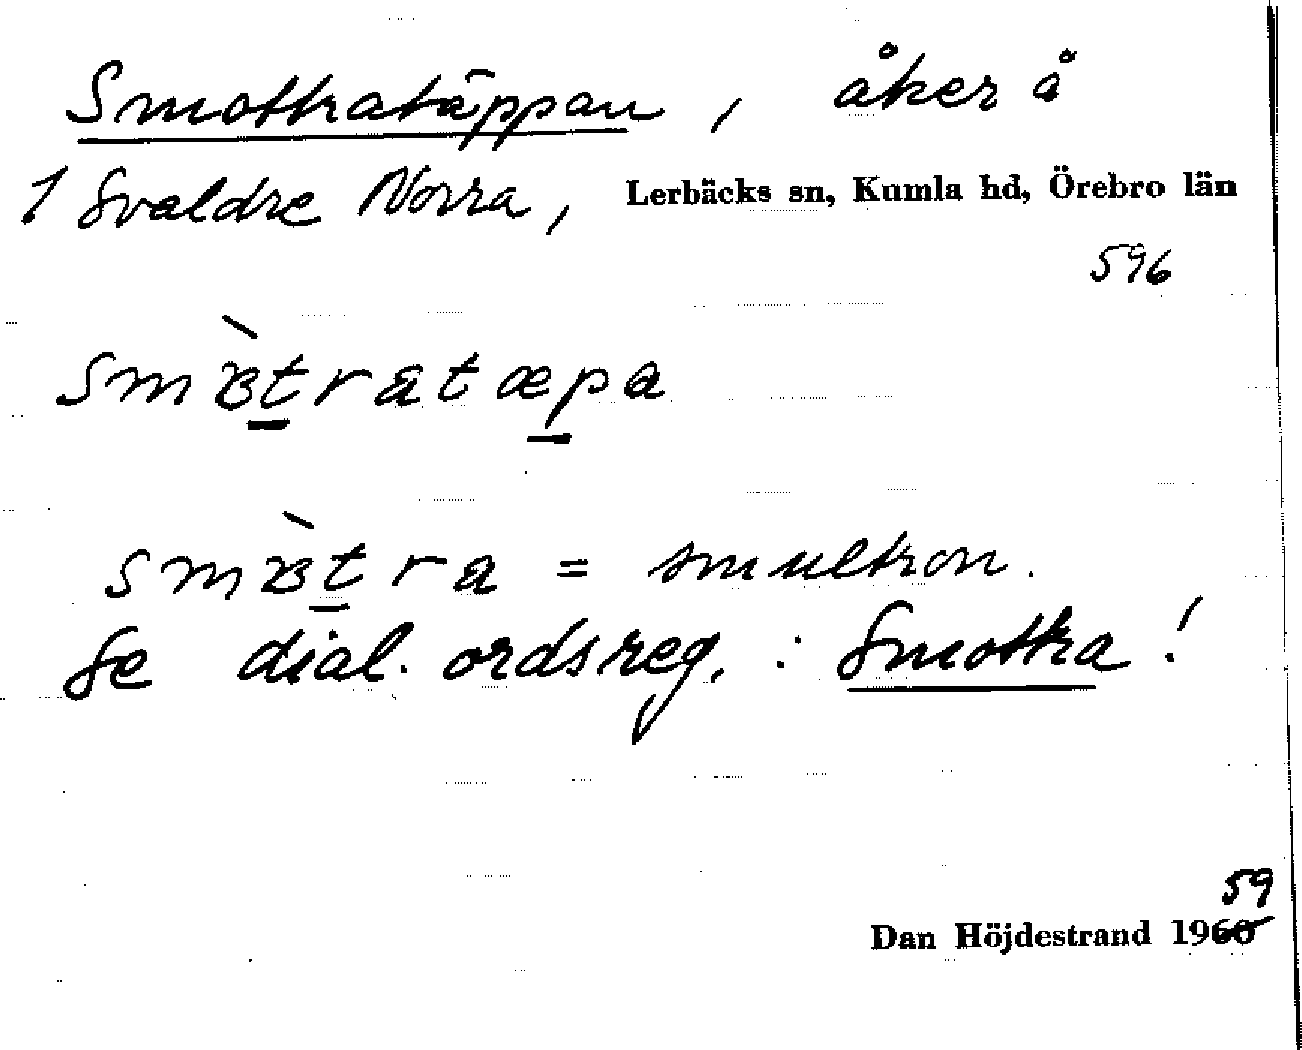 Smottratäppan, åker å
1 Svaldre Norra, Lerbäcks sn, Kumla hd, Örebro län
596
smɞ̀tratæpa
smɞ̀tra = smultron.
Se dial. ordsreg. : Smottra!
59
Dan Höjdestrand 1960